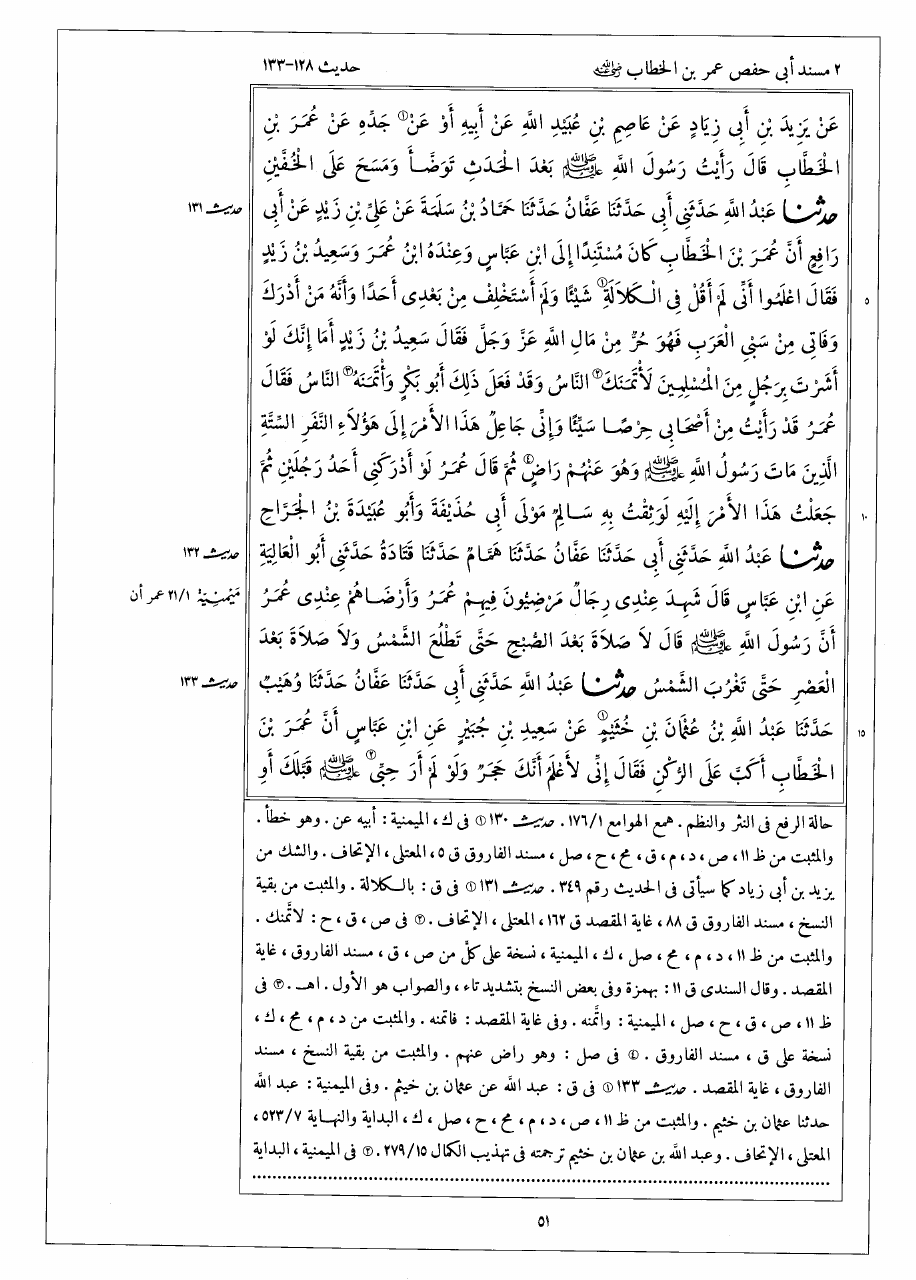 ٢ مسند أبي حفص عمر بن الخطاب رضي الله عنه
حديث ١٢٨-١٣٣
عَنْ يَزِيدَ بْنِ أَبِى زِيَادٍ عَنْ عَاصِمِ بْنِ عُبَيْدِ اللَّهِ عَنْ أَبِيهِ أَوْ عَنْ① جَدِّهِ عَنْ عُمَرَ بْنِ
الْخَطَّابِ قَالَ رَأَيْتُ رَسُولَ اللَّهِ ﷺ بَعْدَ الْحَدَثِ تَوَضَّأَ وَمَسَحَ عَلَى الْخُفَّيْنِ
حدثنا عَبْدُ اللَّهِ حَدَّثَنِى أَبِى حَدَّثَنَا عَفَّانُ حَدَّثَنَا حَمَّادُ بْنُ سَلَمَةَ عَنْ عَلِىِّ بْنِ زَيْدٍ عَنْ أَبِى
حديث ١٣١
رَافِعٍ أَنَّ عُمَرَ بْنَ الْخَطَّابِ كَانَ مُسْتَنِدًا إِلَى ابْنِ عَبَّاسٍ وَعِنْدَهُ ابْنُ عُمَرَ وَسَعِيدُ بْنُ زَيْدٍ
فَقَالَ اعْلَمُوا أَنِّى لَمْ أَقُلْ فِى الْكَلاَلَةِ① شَيْئًا وَلَمْ أَسْتَخْلِفْ مِنْ بَعْدِى أَحَدًا وَأَنَّهُ مَنْ أَدْرَكَ
٥
وَفَاتِى مِنْ سَبْىِ الْعَرَبِ فَهُوَ حُرٌّ مِنْ مَالِ اللَّهِ عَزَّ وَجَلَّ فَقَالَ سَعِيدُ بْنُ زَيْدٍ أَمَا إِنَّكَ لَوْ
أَشَرْتَ بِرَجُلٍ مِنَ الْمُسْلِمِينَ لأْتَمَنَكَ② النَّاسُ وَقَدْ فَعَلَ ذَلِكَ أَبُو بَكْرٍ وَأْتَمَنَهُ③ النَّاسُ فَقَالَ
عُمَرُ قَدْ رَأَيْتُ مِنْ أَصْحَابِى حِرْصًا سَيِّئًا وَإِنِّى جَاعِلٌ هَذَا الأَمْرَ إِلَى هَؤُلاَءِ النَّفَرِ السِّتَّةِ
الَّذِينَ مَاتَ رَسُولُ اللَّهِ ﷺ وَهُوَ عَنْهُمْ رَاضٍ④ ثُمَّ قَالَ عُمَرُ لَوْ أَدْرَكَنِى أَحَدُ رَجُلَيْنِ ثُمَّ
جَعَلْتُ هَذَا الأَمْرَ إِلَيْهِ لَوَثِقْتُ بِهِ سَالِمٌ مَوْلَى أَبِى حُذَيْفَةَ وَأَبُو عُبَيْدَةَ بْنُ الْجَرَّاحِ
١٠
حدثنا عَبْدُ اللَّهِ حَدَّثَنِى أَبِى حَدَّثَنَا عَفَّانُ حَدَّثَنَا هَمَّامٌ حَدَّثَنَا قَتَادَةُ حَدَّثَنِى أَبُو الْعَالِيَةِ
حديث ١٣٢
عَنِ ابْنِ عَبَّاسٍ قَالَ شَهِدَ عِنْدِى رِجَالٌ مَرْضِيُّونَ فِيهِمْ عُمَرُ وَأَرْضَاهُمْ عِنْدِى عُمَرُ
مَيمنِيّة ٢١/١ عمر أن
أَنَّ رَسُولَ اللَّهِ ﷺ قَالَ لاَ صَلاَةَ بَعْدَ الصُّبْحِ حَتَّى تَطْلُعَ الشَّمْسُ وَلاَ صَلاَةَ بَعْدَ
الْعَصْرِ حَتَّى تَغْرُبَ الشَّمْسُ حدثنا عَبْدُ اللَّهِ حَدَّثَنِى أَبِى حَدَّثَنَا عَفَّانُ حَدَّثَنَا وُهَيْبٌ
حديث ١٣٣
حَدَّثَنَا عَبْدُ اللَّهِ بْنُ عُثْمَانَ بْنِ خُثَيْمٍ① عَنْ سَعِيدِ بْنِ جُبَيْرٍ عَنِ ابْنِ عَبَّاسٍ أَنَّ عُمَرَ بْنَ
١٥
الْخَطَّابِ أَكَبَّ عَلَى الرُّكْنِ فَقَالَ إِنِّى لأَعْلَمُ أَنَّكَ حَجَرٌ وَلَوْ لَمْ أَرَ حِبِّى② ﷺ قَبَّلَكَ أَوِ
حالة الرفع فى النثر والنظم . همع الهوامع ١٧٦/١. حديث ١٣٠ ① فى ك ، الميمنية : أبيه عن . وهو خطأ .
والمثبت من ظ ١١ ، ص ، د ، م ، ق ، مح ، ح ، صل ، مسند الفاروق ق ٥ ، المعتلى ، الإتحاف . والشك من
يزيد بن أبى زياد كما سيأتى فى الحديث رقم ٣٤٩ . حديث ١٣١ ① فى ق : بالكلالة . والمثبت من بقية
النسخ ، مسند الفاروق ق ٨٨ ، غاية المقصد ق ١٦٢ ، المعتلى ، الإتحاف . ② فى ص ، ق ، ح : لاتَّمنك .
والمثبت من ظ ١١ ، د ، م ، مح ، صل ، ك ، الميمنية ، نسخة على كلٍّ من ص ، ق ، مسند الفاروق ، غاية
المقصد . وقال السندى ق ١١ : بهمزة وفى بعض النسخ بتشديد تاء ، والصواب هو الأول . اهـ . ③ فى
ظ ١١ ، ص ، ق ، ح ، صل ، الميمنية : واتَّمنه . وفى غاية المقصد : فاتمنه . والمثبت من د ، م ، مح ، ك ،
نسخة على ق ، مسند الفاروق . ④ فى صل : وهو راض عنهم . والمثبت من بقية النسخ ، مسند
الفاروق ، غاية المقصد . حديث ١٣٣ ① فى ق : عبد الله عن عثمان بن خيثم . وفى الميمنية : عبد الله
حدثنا عثمان بن خثيم . والمثبت من ظ ١١ ، ص ، د ، م ، مح ، ح ، صل ، ك ، البداية والنهاية ٥٢٣/٧ ،
المعتلى ، الإتحاف . وعبد الله بن عثمان بن خثيم ترجمته فى تهذيب الكمال ٢٧٩/١٥ . ② فى الميمنية ، البداية
٥١